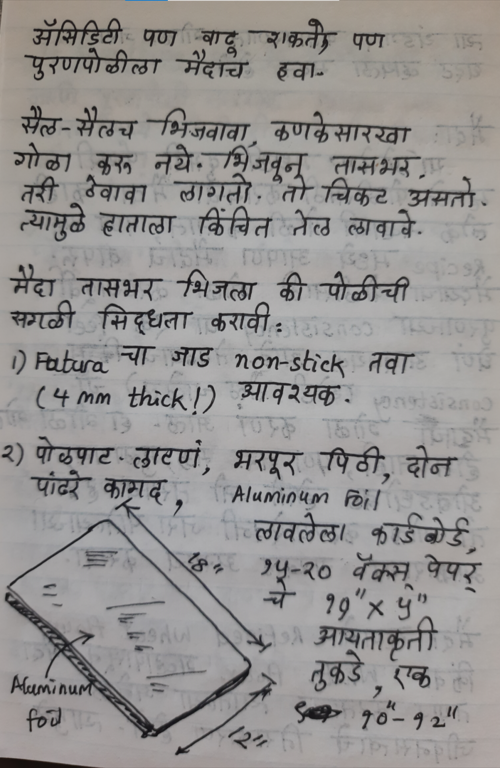 ॲसिडिटी पण वाढू शकते, पण
पुरणपोळीला मैदाच हवा.
सैल-सैलच भिजवावा, कणकेसारखा
गोळा करू नये. भिजवून तासभर
तरी ठेवावा लागतो. तो चिकट असतो.
त्यामुळे हाताला किंचित तेल लावावे.
मैदा तासभर भिजला की पोळीची
सगळी सिद्धता करावी:
१) Futura चा जाड non-stick तवा
(4 mm thick!) आवश्यक.
२) पोळपाट-लाटणं, भरपूर पिठी, दोन
पांढरे कागद, Aluminum foil
लावलेला कार्डबोर्ड,
18" १५-२० वॅक्स् पेपर्
चे ११" x ५"
आयताकृती
Aluminum तुकडे, एक
foil १०"-१२"
12"